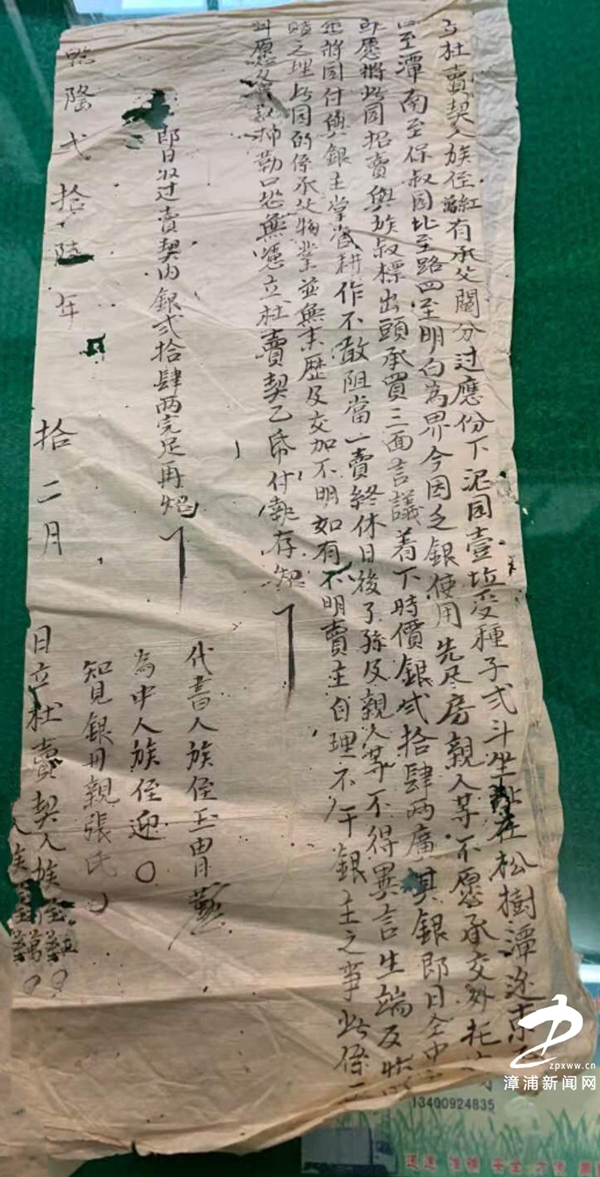 立杜賣契人族侄 有承父鬮分过應份下泥园壹坵受種子弍斗坐址在松樹潭近東至
西至潭南至保叔园北至路四至明白為界今因乏銀使用先尽房親人等不愿承交外托
即愿將此园招賣與族叔標出頭承買三面言議着下時價銀弍拾肆両廣其銀即日仝中
还將园付與銀主掌管耕作不敢阻當一賣終休日後子孫及親人等不得異言生端反
贖之理此园的係承父物業並無来歷及交加不明如有不明賣主自理不干銀主之事此係二
愿各 抑勒口恐無憑立杜賣契乙帋付執存炤
即日收过賣契内銀弍拾肆両完足再炤
代書人族侄玉胄
為中人族侄迎
知見銀母親張氏
隆弍拾陸年 拾二月 日立杜賣契人族侄
zpxww.cn
漳浦新闻网
13400924835